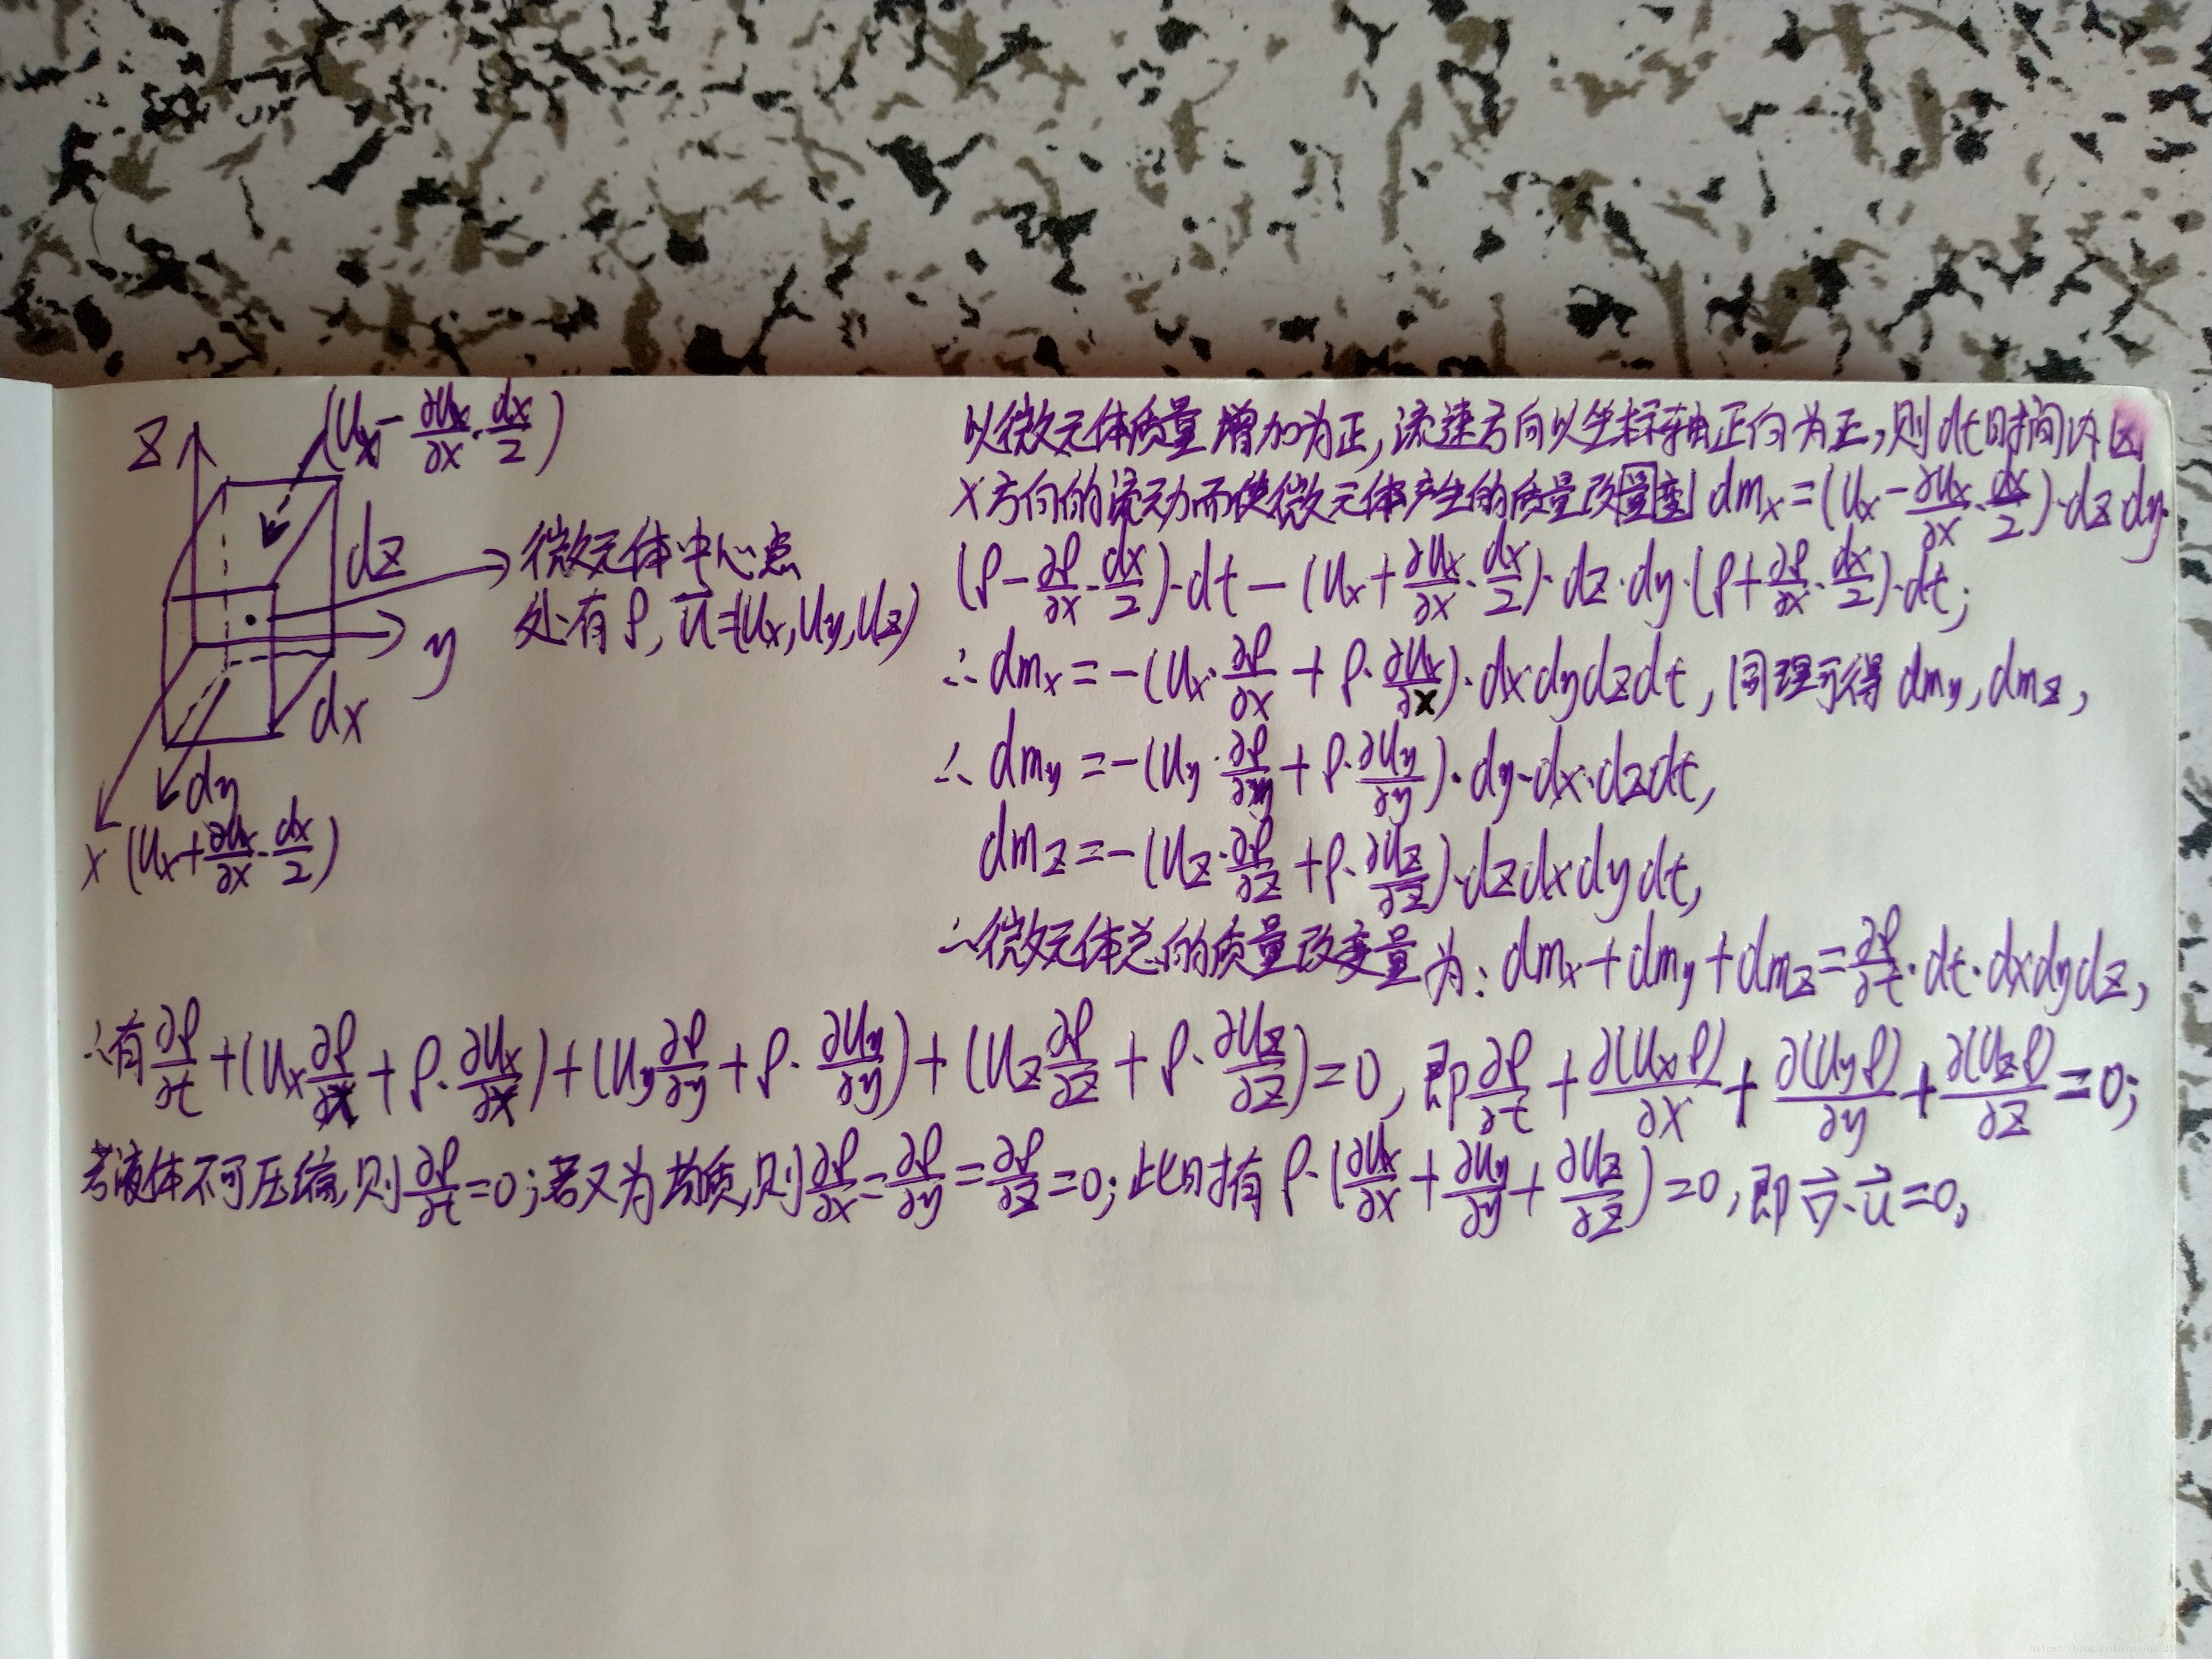 (Ux - ∂Ux/∂x · dx/2)
z
dz
微元体中心点
处有ρ, u⃗=(Ux,Uy,Uz)
y
dx
dy
x (Ux+∂Ux/∂x·dx/2)
以微元体质量增加为正,流速方向以坐标轴正向为正,则dt时间内因
x方向的流动而使微元体产生的质量改变 dmx=(Ux-∂Ux/∂x·dx/2)·dz·dy·
(ρ-∂ρ/∂x·dx/2)·dt-(Ux+∂Ux/∂x·dx/2)·dz·dy·(ρ+∂ρ/∂x·dx/2)·dt;
∴dmx=-(Ux·∂ρ/∂x+ρ·∂Ux/∂x)·dxdydzdt,同理可得dmy,dmz,
∴dmy=-(Uy·∂ρ/∂y+ρ·∂Uy/∂y)·dy·dx·dzdt,
dmz=-(Uz·∂ρ/∂z+ρ·∂Uz/∂z)·dzdxdydt,
∴微元体总的质量改变量为:dmx+dmy+dmz=∂ρ/∂t·dt·dxdydz,
∴有∂ρ/∂t+(Ux∂ρ/∂x+ρ·∂Ux/∂x)+(Uy∂ρ/∂y+ρ·∂Uy/∂y)+(Uz∂ρ/∂z+ρ·∂Uz/∂z)=0,即∂ρ/∂t+∂(Uxρ)/∂x+∂(Uyρ)/∂y+∂(Uzρ)/∂z=0;
若液体不可压缩,则∂ρ/∂t=0;若又为均质,则∂ρ/∂x=∂ρ/∂y=∂ρ/∂z=0;此时有ρ·(∂Ux/∂x+∂Uy/∂y+∂Uz/∂z)=0,即∇⃗·u⃗=0,